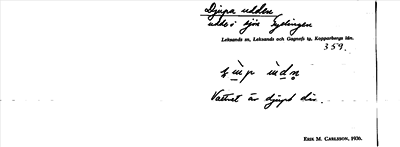 Djupa udden
udde i sjön Gyslingen
Leksands sn, Leksands och Gagnefs tg, Kopparbergs län.
359.
Vattnet är djupt där.
ERIK M. CARLSSON, 1936.